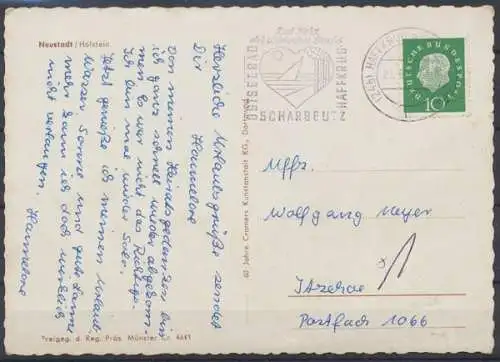 Neustadt / Holstein
Herzliche Urlaubsgrüße sendet
Dir Hannelore
Von meinen Heiratsgedanken bin
ich ganz schnell wieder abgekom-
men. Es war nicht das Richtige.
Ich bin mal wieder Solo.
Jetzt genieße ich meinen Urlaub.
Wasser, Sonne und gute Laune
mehr kann ich doch wirklich
nicht verlangen. Hannelore
Freigeg. d. Reg. Präs. Münster Cr. 4641
60 Jahre Cramers Kunstanstalt KG., Dortmund
OSTSEEBAD
SCHARBEUTZ
HAFFKRUG
DEUTSCHE BUNDESPOST
10
Uffz.
Wolfgang Meyer
Itzehoe
Postfach 1066